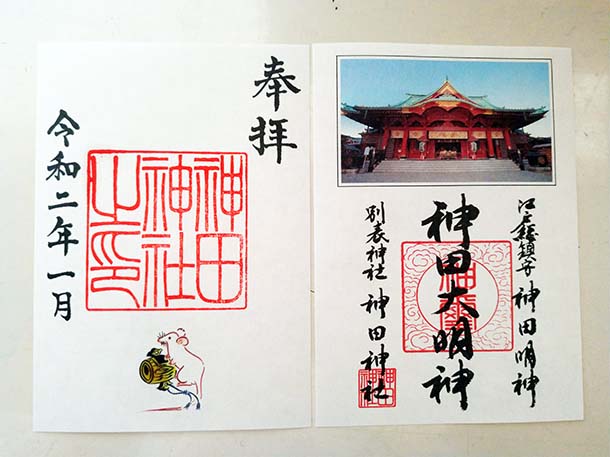 奉拝
神田
神社
之印
令和二年一月
江戸総鎮守 神田明神
神田大明神
神璽
別表神社 神田神社
神田
神社